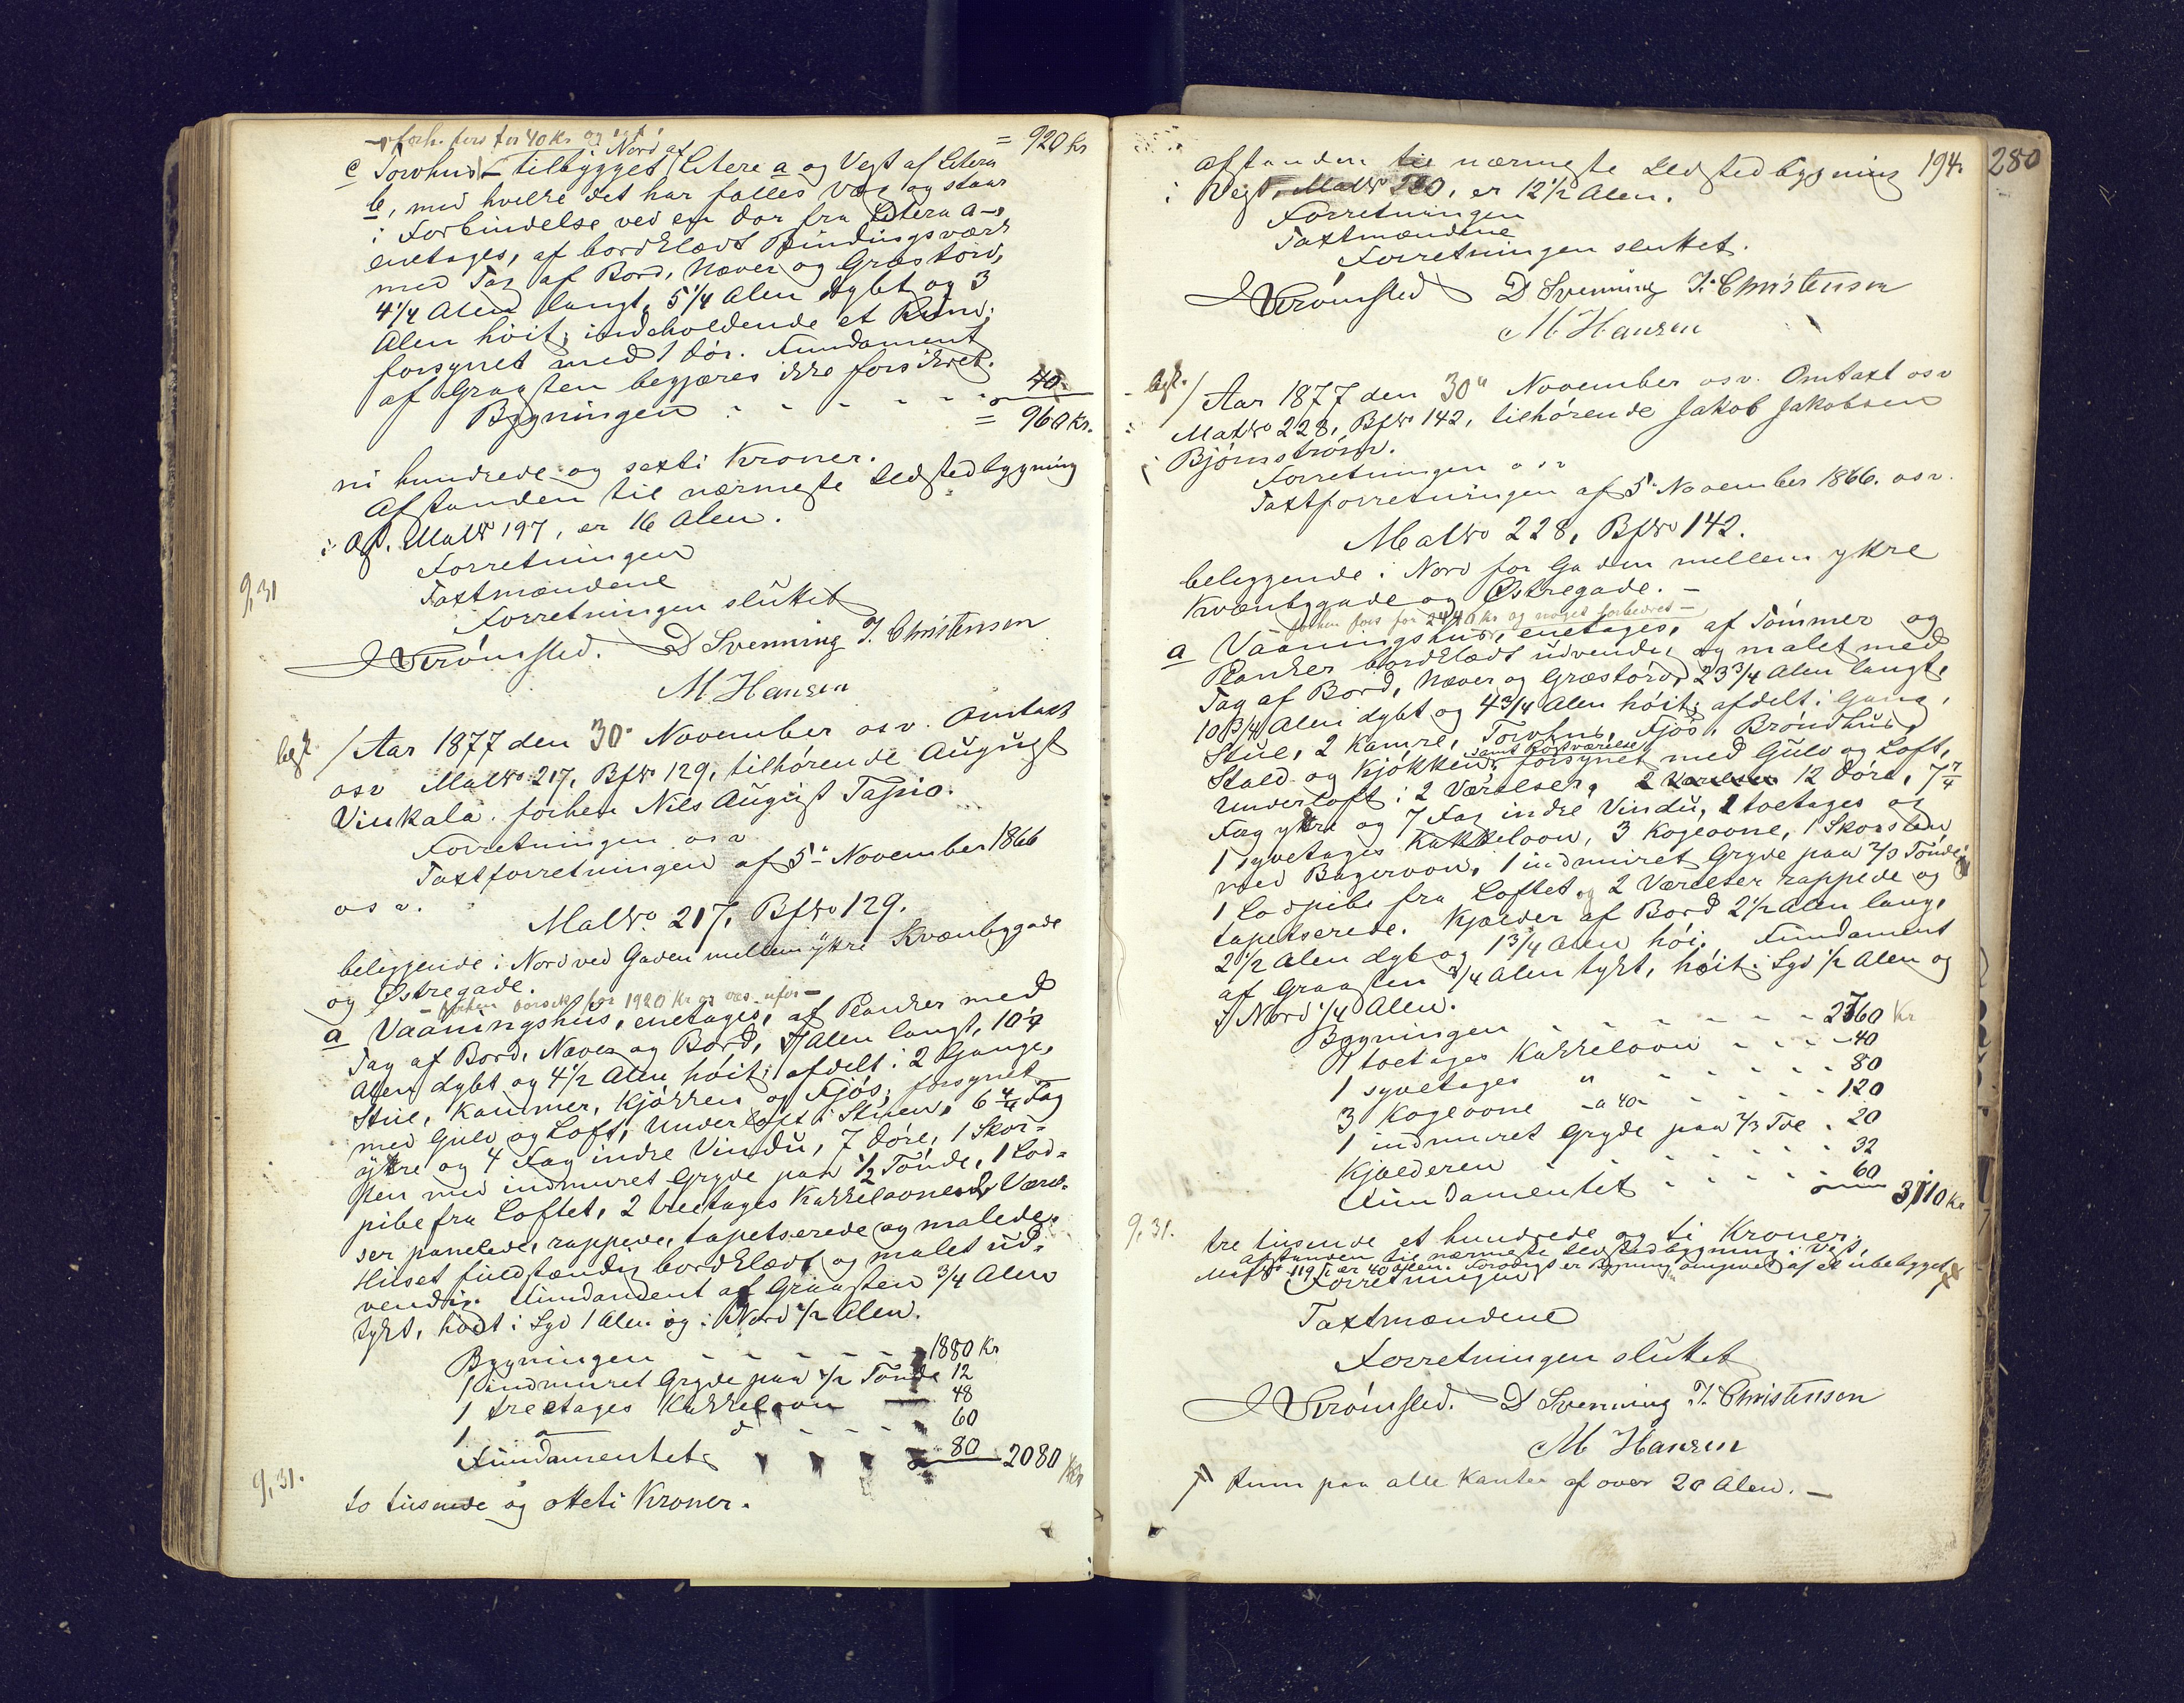 forh. fors for 40 Kr og
= 920 kr
c Torvhus tilbygget i Nord af Litera a og Vest af Litera
b, med hvilke det har fælles Væg og staar
i Forbindelse ved en Dør fra Litera a
enetages, af bordklædt Bindingsværk
med Tag af Bord, Næver og Græstørv,
4 1/4 Alen langt, 5 1/4 Alen dybt og 3
Alen høit; indeholdende et Rum;
forsynet med 1 Dør. Fundament
af Graasten begjæres ikke forsikret.
Bygningen - - - - - 40
= 960 Kr.
ni hundrede og sexti Kroner.
Afstanden til nærmeste Ildstedbygning
i Øst, MatNo 197, er 16 Alen.
Forretningen
9,31
Taxtmændene
Forretningen sluttet
Strømsted. D Svenning J. Christensen
M Hansen
begt. / Aar 1877 den 30 November osv. Omtaxt
osv MatNo 217, BfNo 129, tilhørende August
Vinkala. forhen Nils August Tajnio.
Forretningen osv
Taxtforretningen af 5" November 1866
osv.
MatNo 217, BfNo 129.
beliggende i Nord ved Gaden mellem ytre Kvænbygade
og Østregade.
forhen forsik for 1920 Kr og væs. ufor-
a Vaaningshus, enetages, af Planker med
Tag af Bord, Næver og Bord, Alen langt, 10 1/4
Alen dybt og 4 1/2 Alen høit; afdelt i 2 Gange,
Stue, Kammer, Kjøkken og Fjøs; forsynet
med Gulv og Loft, Underloft i Stuen, 6 4/4 Fag
ytre og 4 Fag indre Vindu, 7 Døre, 1 Skor-
sten med indmuret Gryde paa 1/2 Tønde, 1 Lod-
pibe fra Loftet, 2 treetages Kakkelovne. 2 Værel-
ser panelede, rappede, tapetserede og malede.
Huset fuldstændig bordklædt og malet ud-
vendig. Fundament af Graasten 3/4 Alen
tykt, høit i Syd 1 Alen og i Nord 1/2 Alen.
Bygningen - - - - - 1880 Kr
1 indmuret Gryde paa 1/2 Tønde 12
1 treetages Kakkelovn 48
1 - d - - - - 60
Fundamentet 80 2080 Kr
9,31.
to tusende og otteti Kroner.
Afstanden til nærmeste Ildstedbygning 194. 280
i Vest, MatNo, er 12 1/2 Alen.
Forretningen
Taxtmændene
Forretningen sluttet.
Strømsted D Svenning J. Christensen
M Hansen
begt. / Aar 1877 den 30" November osv. Omtaxt osv
MatNo 228, BfNo 142, tilhørende Jakob Jakobsen
Bjørnstrøm.
Forretningen osv
Taxtforretningen af 5" November 1866. osv.
MatNo 228, BfNo 142.
beliggende i Nord for Gaden mellem ytre
Kvænbygade og Østregade. -
forhen fors for 2440 kr og noget forbedret -
a Vaaningshus, enetages, af Tømmer og
Planker bordklædt udvendig og malet med
Tag af Bord, Næver og Græstørv, 23 3/4 Alen langt,
10 3/4 Alen dybt og 4 3/4 Alen høit; afdelt i Gang,
Stue, 2 Kamre, Torvhus, Fjøs, Brøndhus,
Stald og Kjøkken, samt forsynet med Gulv og Loft,
Underloft i 2 Værelser, 12 Døre, 7 7/4
Fag ytre og 7 Fag indre Vindu, 1 toetages og
1 syvetages Kakkelovn, 3 Kogeovne, 1 Skorsten
med Bagerovn, 1 indmuret Gryde paa 2/3 Tønde,
1 Lodpibe fra Loftet, og 2 Værelser rappede og
tapetserede. Kjælder af Bord 2 1/2 Alen lang,
2 1/2 Alen dyb og 1 3/4 Alen høi. Fundament
af Graasten 3/4 Alen tykt, høit i Syd 1/2 Alen og
i Nord 1/4 Alen.
Bygningen - - - - - 2760 Kr
1 toetages Kakkelovn - - - 40
1 syvetages " - - - - 80
3 Kogeovne -a 40- - - - 120
1 indmuret Gryde paa 2/3 Tde - 20
Kjælderen - - - - - 32
Fundamentet - - - - 60 3110 Kr
9,31.
tre tusende et hundrede og ti Kroner.
Afstanden til nærmeste Ildstedbygning i Vest,
MatNo 119, er 40 Alen. Forøvrigt er Bygningen omgivet af et ubebygget
Forretningen
Taxtmændene
Forretningen sluttet
Strømsted. D Svenning J. Christensen
M Hansen
Rum paa alle Kanter af over 20 Alen. -